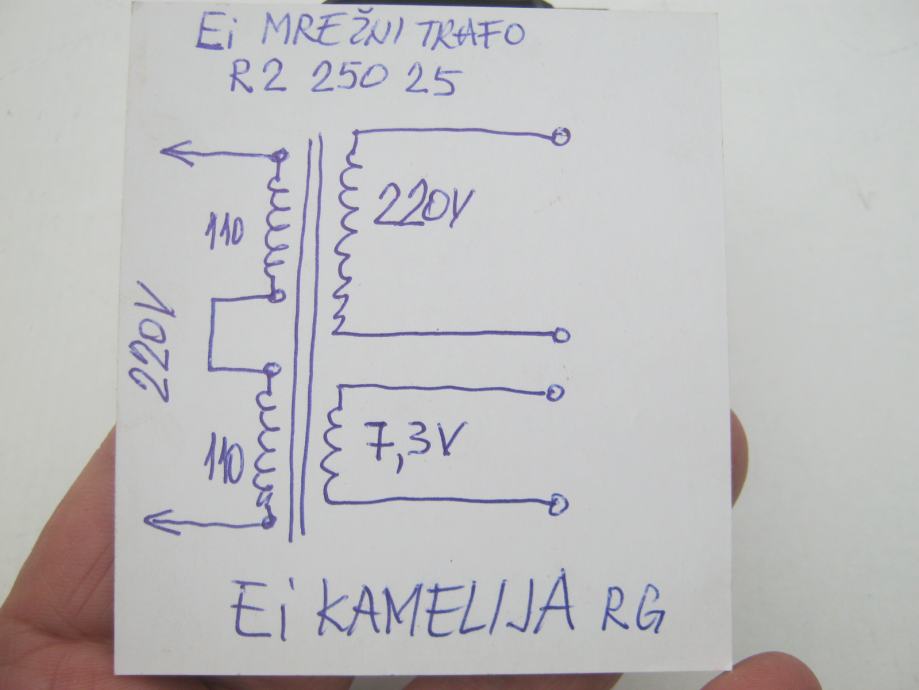 Ei MREŽNI TRAFO
R2 250 25
110
220V
220V
110
7,3V
Ei KAMELIJA RG